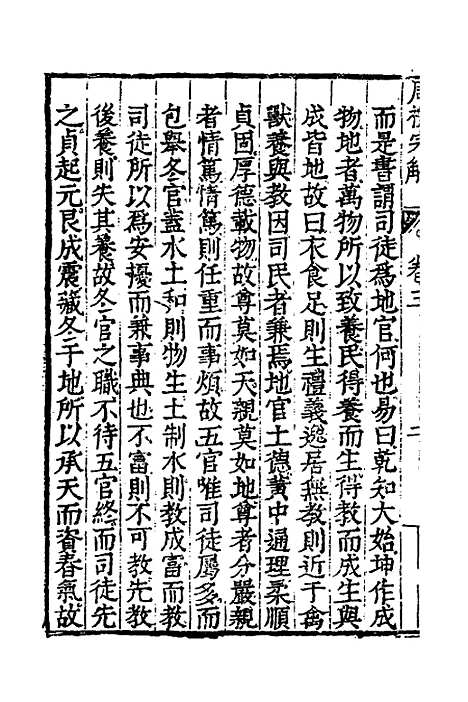 而是書謂司徒為地官何也易曰乾知大始坤作成
物地者萬物所以致養民得養而生得教而成生與
成皆地故曰衣食足則生禮義逸居無教則近于禽
獸養與教因司民者兼焉地官土德黄中通理柔順
貞固厚德載物故尊莫如天親莫如地尊者分嚴親
者情篤情篤則任重而事煩故五官唯司徒屬多而
包舉冬官蓋水土和則物生土制水則教成富而教
司徒所以為安擾而兼事典也不富則不可教先教
後養則失其養故冬官之職不待五官終而司徒先
之貞起元艮成震藏冬于地所以承天而資春氣故
卷三